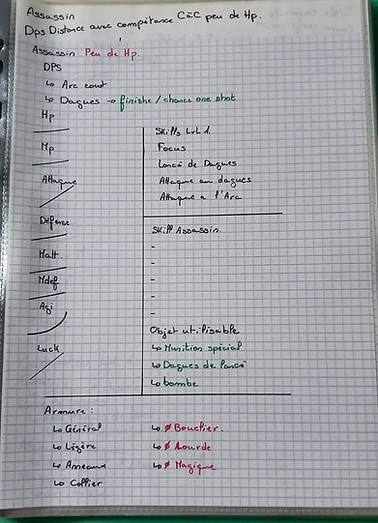 Assassin
Dps Distance avec compétance CàC peu de Hp.
Assassin Peu de Hp.
DPS
↳ Arc court
↳ Dagues → finishe / chance one shot
Hp
Mp
Attaque
Défense
Matt.
Mdef
Agi
Luck
Skills LvL 1.
Focus
Lancé de Dagues
Attaque au dagues
Attaque a l'Arc
Skill Assassin.
-
-
-
-
-
Objet utilisable
↳ Munition spécial
↳ Dagues de lancé
↳ bombe
Armure :
↳ Général
↳ Légère
↳ Anneaux
↳ Collier
↳ Ø Bouclier.
↳ Ø Lourde
↳ Ø Magique